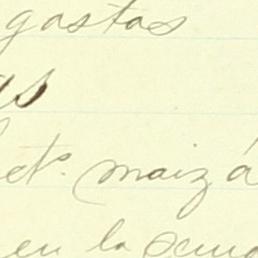 gastos
as
et⁰. maiz á
en la